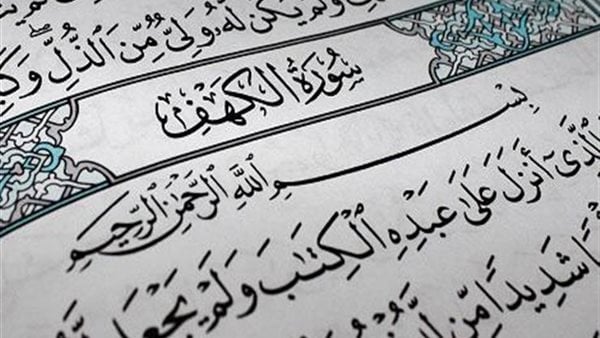 وَلَمْ يَكُن لَّهُۥ وَلِىٌّ مِّنَ ٱلذُّلِّ
سُورَةُ الكَهْفِ
بِسْمِ ٱللَّهِ ٱلرَّحْمَٰنِ ٱلرَّحِيمِ
ٱلَّذِىٓ أَنزَلَ عَلَىٰ عَبْدِهِ ٱلْكِتَٰبَ وَلَمْ يَجْعَل
شَدِيدًا مِّن